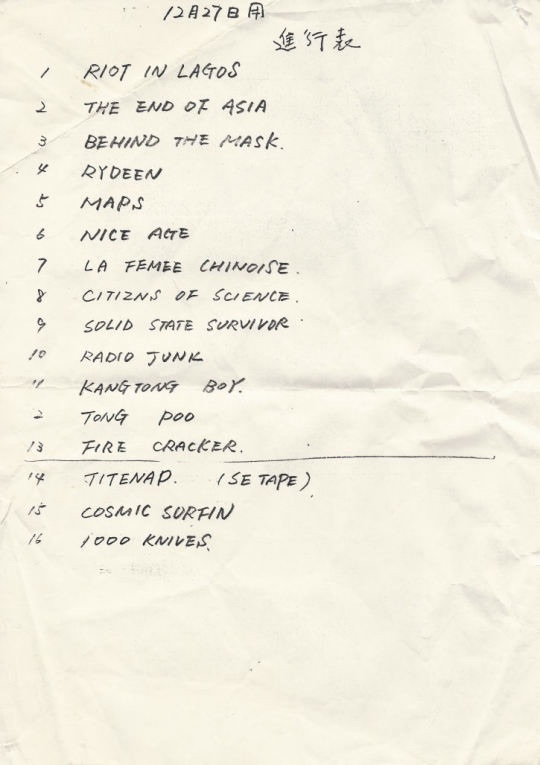 12月27日用
進行表
1 RIOT IN LAGOS
2 THE END OF ASIA
3 BEHIND THE MASK.
4 RYDEEN
5 MAPS
6 NICE AGE
7 LA FEMEE CHINOISE.
8 CITIZNS OF SCIENCE.
9 SOLID STATE SURVIVOR
10 RADIO JUNK
11 KANGTONG BOY.
2 TONG POO
13 FIRE CRACKER.
14 TITENAP. (SE TAPE)
15 COSMIC SURFIN
16 1000 KNIVES.